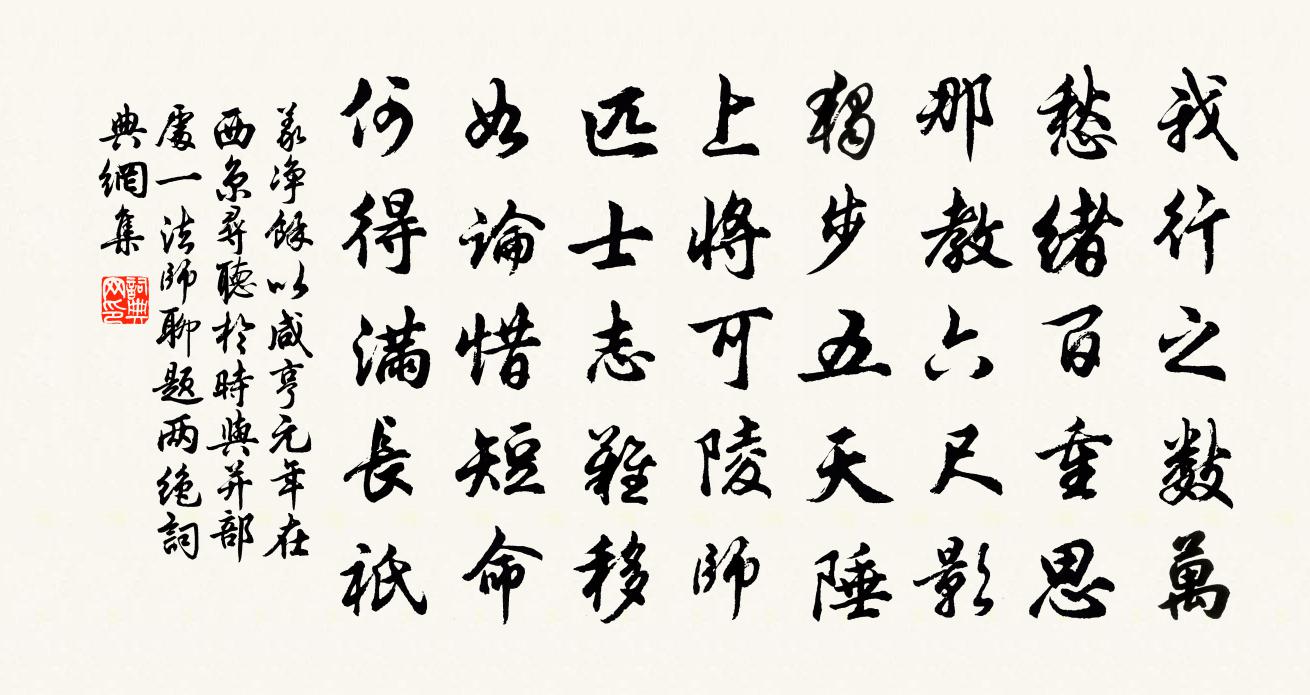 我行之數萬
愁緒百重思
那教六尺影
獨步五天陲
上將可陵師
匹士志難移
如論惜短命
何得滿長祇
義净餘以咸亨元年在
西京尋聽於時與并部
處一法師聊題两絶詞
典網集
詞典网印